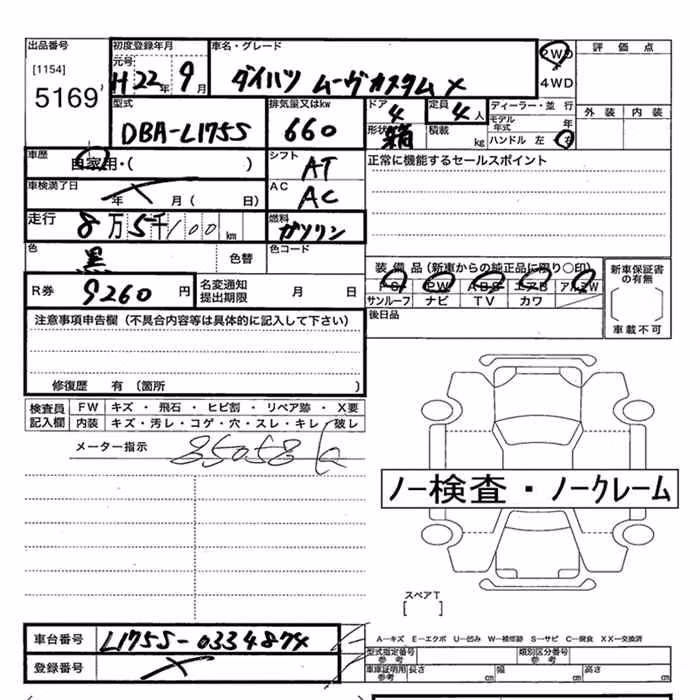 出品番号 初度登録年月 車名・グレード 2WD 評価点
[1154] 元号 H22年 9月 ダイハツ ムーヴカスタム X 4WD
5169 型式 排気量又はkw ドア 定員 ディーラー・並行 外装 内装
DBA-L175S 660 4 4人 モデル年式 年
形状 箱 積載 kg ハンドル 左 右
車歴 自家用・( ) シフト AT 正常に機能するセールスポイント
車検満了日 年 月( 日) AC AC
走行 8万5千100km 燃料 ガソリン
色 黒 色替 色コード
装備品(新車からの純正品に限り○印) 新車保証書の有無
R券 9260円 名変通知提出期限 月 日 PS PW ABS エアB アルミW
サンルーフ ナビ TV カワ 車載不可
注意事項申告欄(不具合内容等は具体的に記入して下さい) 後日品
修復歴 有〔箇所 〕
検査員記入欄 FW キズ・飛石・ヒビ割・リペア跡・X要
内装 キズ・汚レ・コゲ・穴・スレ・キレ・破レ
メーター指示 85058k
ノー検査・ノークレーム
スペアT
[ ]
車台番号 L175S-0334874 A-キズ E-エクボ U-凹み W-補修跡 S-サビ C-腐食 XX-交換済
登録番号 型式指定番号 参考 類別区分番号 参考
車庫証明用 参考 長さ cm 幅 cm 高さ cm